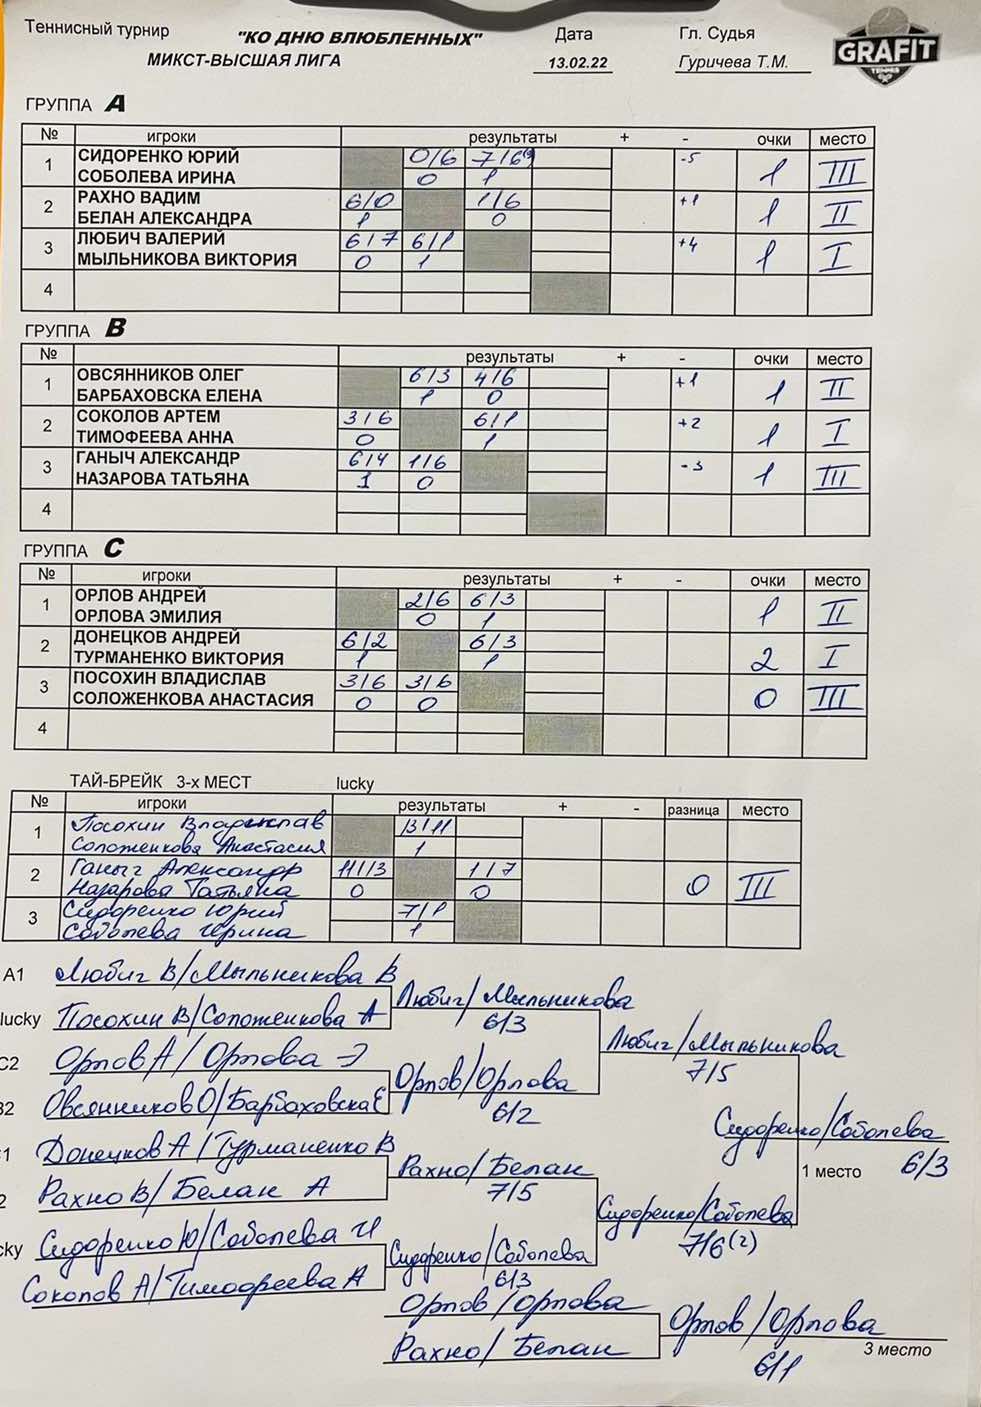 Теннисный турнир "КО ДНЮ ВЛЮБЛЕННЫХ" Дата Гл. Судья
МИКСТ-ВЫСШАЯ ЛИГА 13.02.22 Гуричева Т.М.
GRAFIT
TENNIS
ГРУППА A
№ игроки результаты + - очки место
1 СИДОРЕНКО ЮРИЙ 0/6 7/6(9) -5 1 III
СОБОЛЕВА ИРИНА 0 1
2 РАХНО ВАДИМ 6/0 1/6 +1 1 II
БЕЛАН АЛЕКСАНДРА 1 0
3 ЛЮБИЧ ВАЛЕРИЙ 6/7 6/1 +4 1 I
МЫЛЬНИКОВА ВИКТОРИЯ 0 1
4
ГРУППА B
№ результаты + - очки место
1 ОВСЯННИКОВ ОЛЕГ 6/3 4/6 +1 1 II
БАРБАХОВСКА ЕЛЕНА 1 0
2 СОКОЛОВ АРТЕМ 3/6 6/1 +2 1 I
ТИМОФЕЕВА АННА 0 1
3 ГАНЫЧ АЛЕКСАНДР 6/4 1/6 -3 1 III
НАЗАРОВА ТАТЬЯНА 1 0
4
ГРУППА C
№ игроки результаты + - очки место
1 ОРЛОВ АНДРЕЙ 2/6 6/3 1 II
ОРЛОВА ЭМИЛИЯ 0 1
2 ДОНЕЦКОВ АНДРЕЙ 6/2 6/3 2 I
ТУРМАНЕНКО ВИКТОРИЯ 1 1
3 ПОСОХИН ВЛАДИСЛАВ 3/6 3/6 0 III
СОЛОЖЕНКОВА АНАСТАСИЯ 0 0
4
ТАЙ-БРЕЙК 3-х МЕСТ lucky
№ игроки результаты + - разница место
1 Посохин Владислав 13/11
Соложенкова Анастасия 1
2 Ганыч Александр 11/13 1/7 0 III
Назарова Татьяна 0 0
3 Сидоренко Юрий 7/1
Соболева Ирина 1
A1 Любич В/Мыльникова В
Любич/Мыльникова
lucky Посохин В/Соложенкова А
6/3
Любич/Мыльникова
C2 Орлов А/Орлова Э
7/5
Орлов/Орлова
B2 Овсянников О/Барбаховска Е
6/2
Сидоренко/Соболева
1 Донецков А/Турманенко В
6/3
Рахно/Белан
1 место
2 Рахно В/Белан А
7/5
Сидоренко/Соболева
cky Сидоренко Ю/Соболева И
7/6(2)
Сидоренко/Соболева
Соколов А/Тимофеева А
6/3
Орлов/Орлова
Орлов/Орлова
Рахно/Белан
3 место
6/1